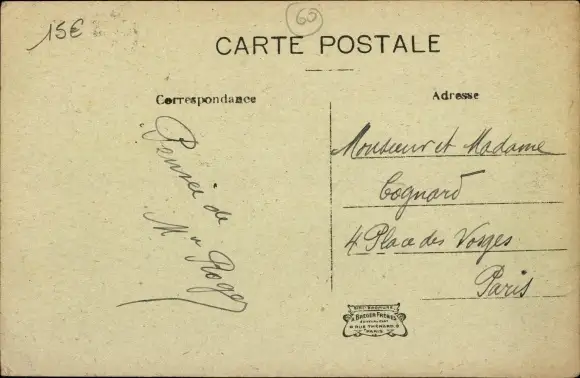 15€
60
CARTE POSTALE
Correspondance
Adresse
Pensée de
M Roger
Monsieur et Madame
Cognard
4 Place des Vosges
Paris
BAUDER FRÈRES
6 RUE THÉNARD, 6
PARIS